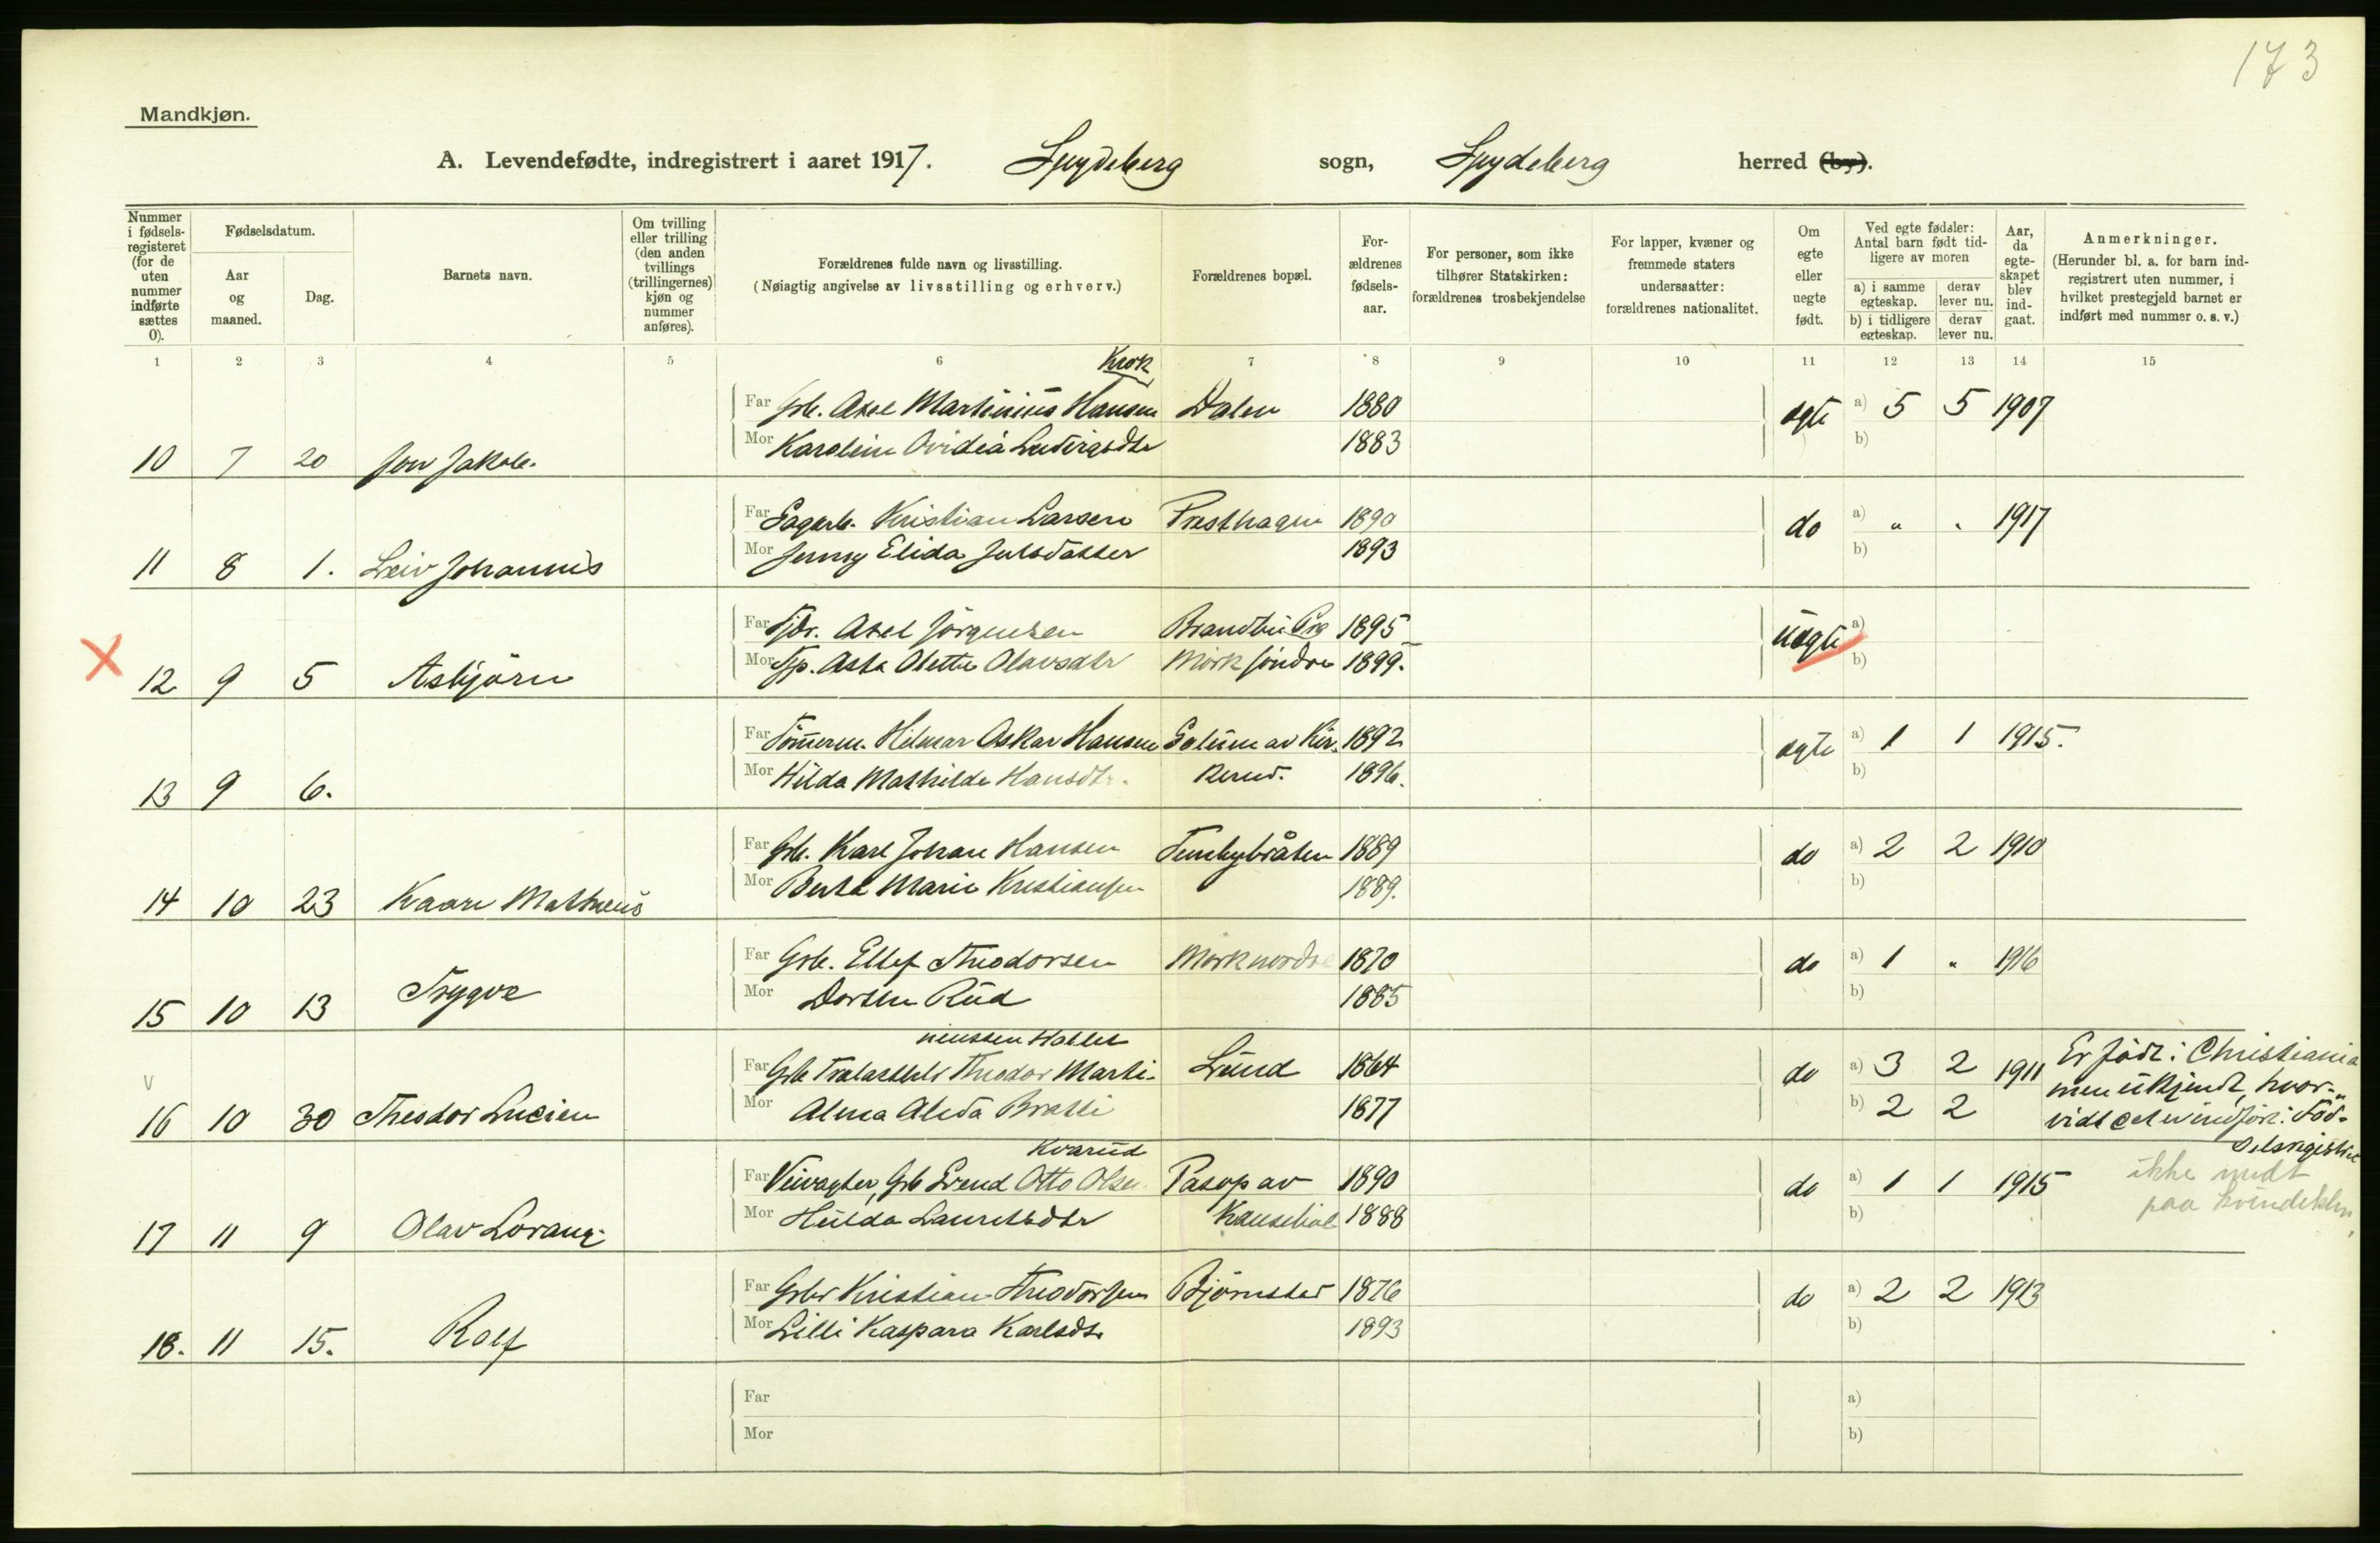 173
Mandkjøn.
A. Levendefødte, indregistrert i aaret 1917. Spydeberg sogn, Spydeberg herred (by).
Nummer i fødselsregisteret (for de uten nummer indførte sættes 0).
Fødselsdatum.
Aar og maaned.
Dag.
Barnets navn.
Om tvilling eller trilling (den anden tvillings (trillingernes) kjøn og nummer anføres).
Forældrenes fulde navn og livsstilling.
(Nøiagtig angivelse av livsstilling og erhverv.)
Forældrenes bopæl.
For-ældrenes fødsels-aar.
For personer, som ikke tilhører Statskirken: forældrenes trosbekjendelse
For lapper, kvæner og fremmede staters undersaatter: forældrenes nationalitet.
Om egte eller uegte født.
Ved egte fødsler: Antal barn født tid-ligere av moren
a) i samme egteskap.
derav lever nu.
b) i tidligere egteskap.
derav lever nu.
Aar, da egte-skapet blev ind-gaat.
Anmerkninger.
(Herunder bl. a. for barn ind-registrert uten nummer, i hvilket prestegjeld barnet er indført med nummer o. s. v.)
1 2 3 4 5 6 7 8 9 10 11 12 13 14 15
Krok
Far Grb. Axel Martinius Hansen Dalen 1880 egte a) 5 5 1907
Mor Karoline Ovidia 1883 b)
10 7 20 Jon Jakob.
Far Sagarb. Kristian Larsen Presthagen 1890 do a) " " 1917
Mor Jenny Elida Julsdatter 1893 b)
11 8 1. Leiv Johannes
Far Axel Jörgensen 1895 uegte a)
Mor Asta Olette Olavsdtr Mörk söndre 1899. b)
12 9 5 Asbjörn
Far Tömerm. Hilmar Oskar Hansen Solum av Kir- 1892 egte a) 1 1 1915.
Mor Hilda Mathilde Hansdtr. kerud. 1896. b)
13 9 6.
Far Grb. Karl Johan Hansen 1889 do a) 2 2 1910
Mor Berta Marie Kristiansen 1889. b)
14 10 23 Kaare Matheus
Far Grb. Ellef Theodorsen Mörk nordre 1870 do a) 1 " 1916
Mor Dorthe Rud 1885 b)
15 10 13 Trygve
Far Grb Theodor Marti- Lund 1864 do a) 3 2 1911 Er födt i Christiania
Mor Alma Alvda Bratli 1877 b) 2 2 men ukjendt, hvor-
16 10 30 Theodor Lucien vidt det er indfört i Föd-
selsregistret
Kvarud
Far Veivogter, Grb Svend Otto Olsen Pasop av 1890 do a) 1 1 1915 ikke medt
Mor Hulda Lauritsdtr 1888 b) paa
17 11 9 Olav Lorang
Far Grbr Kristian Theodorsen Björnstad 1876 do a) 2 2 1913
Mor Lilli Kaspara Karlsdtr 1893 b)
18. 11 15. Rolf
Far a)
Mor b)